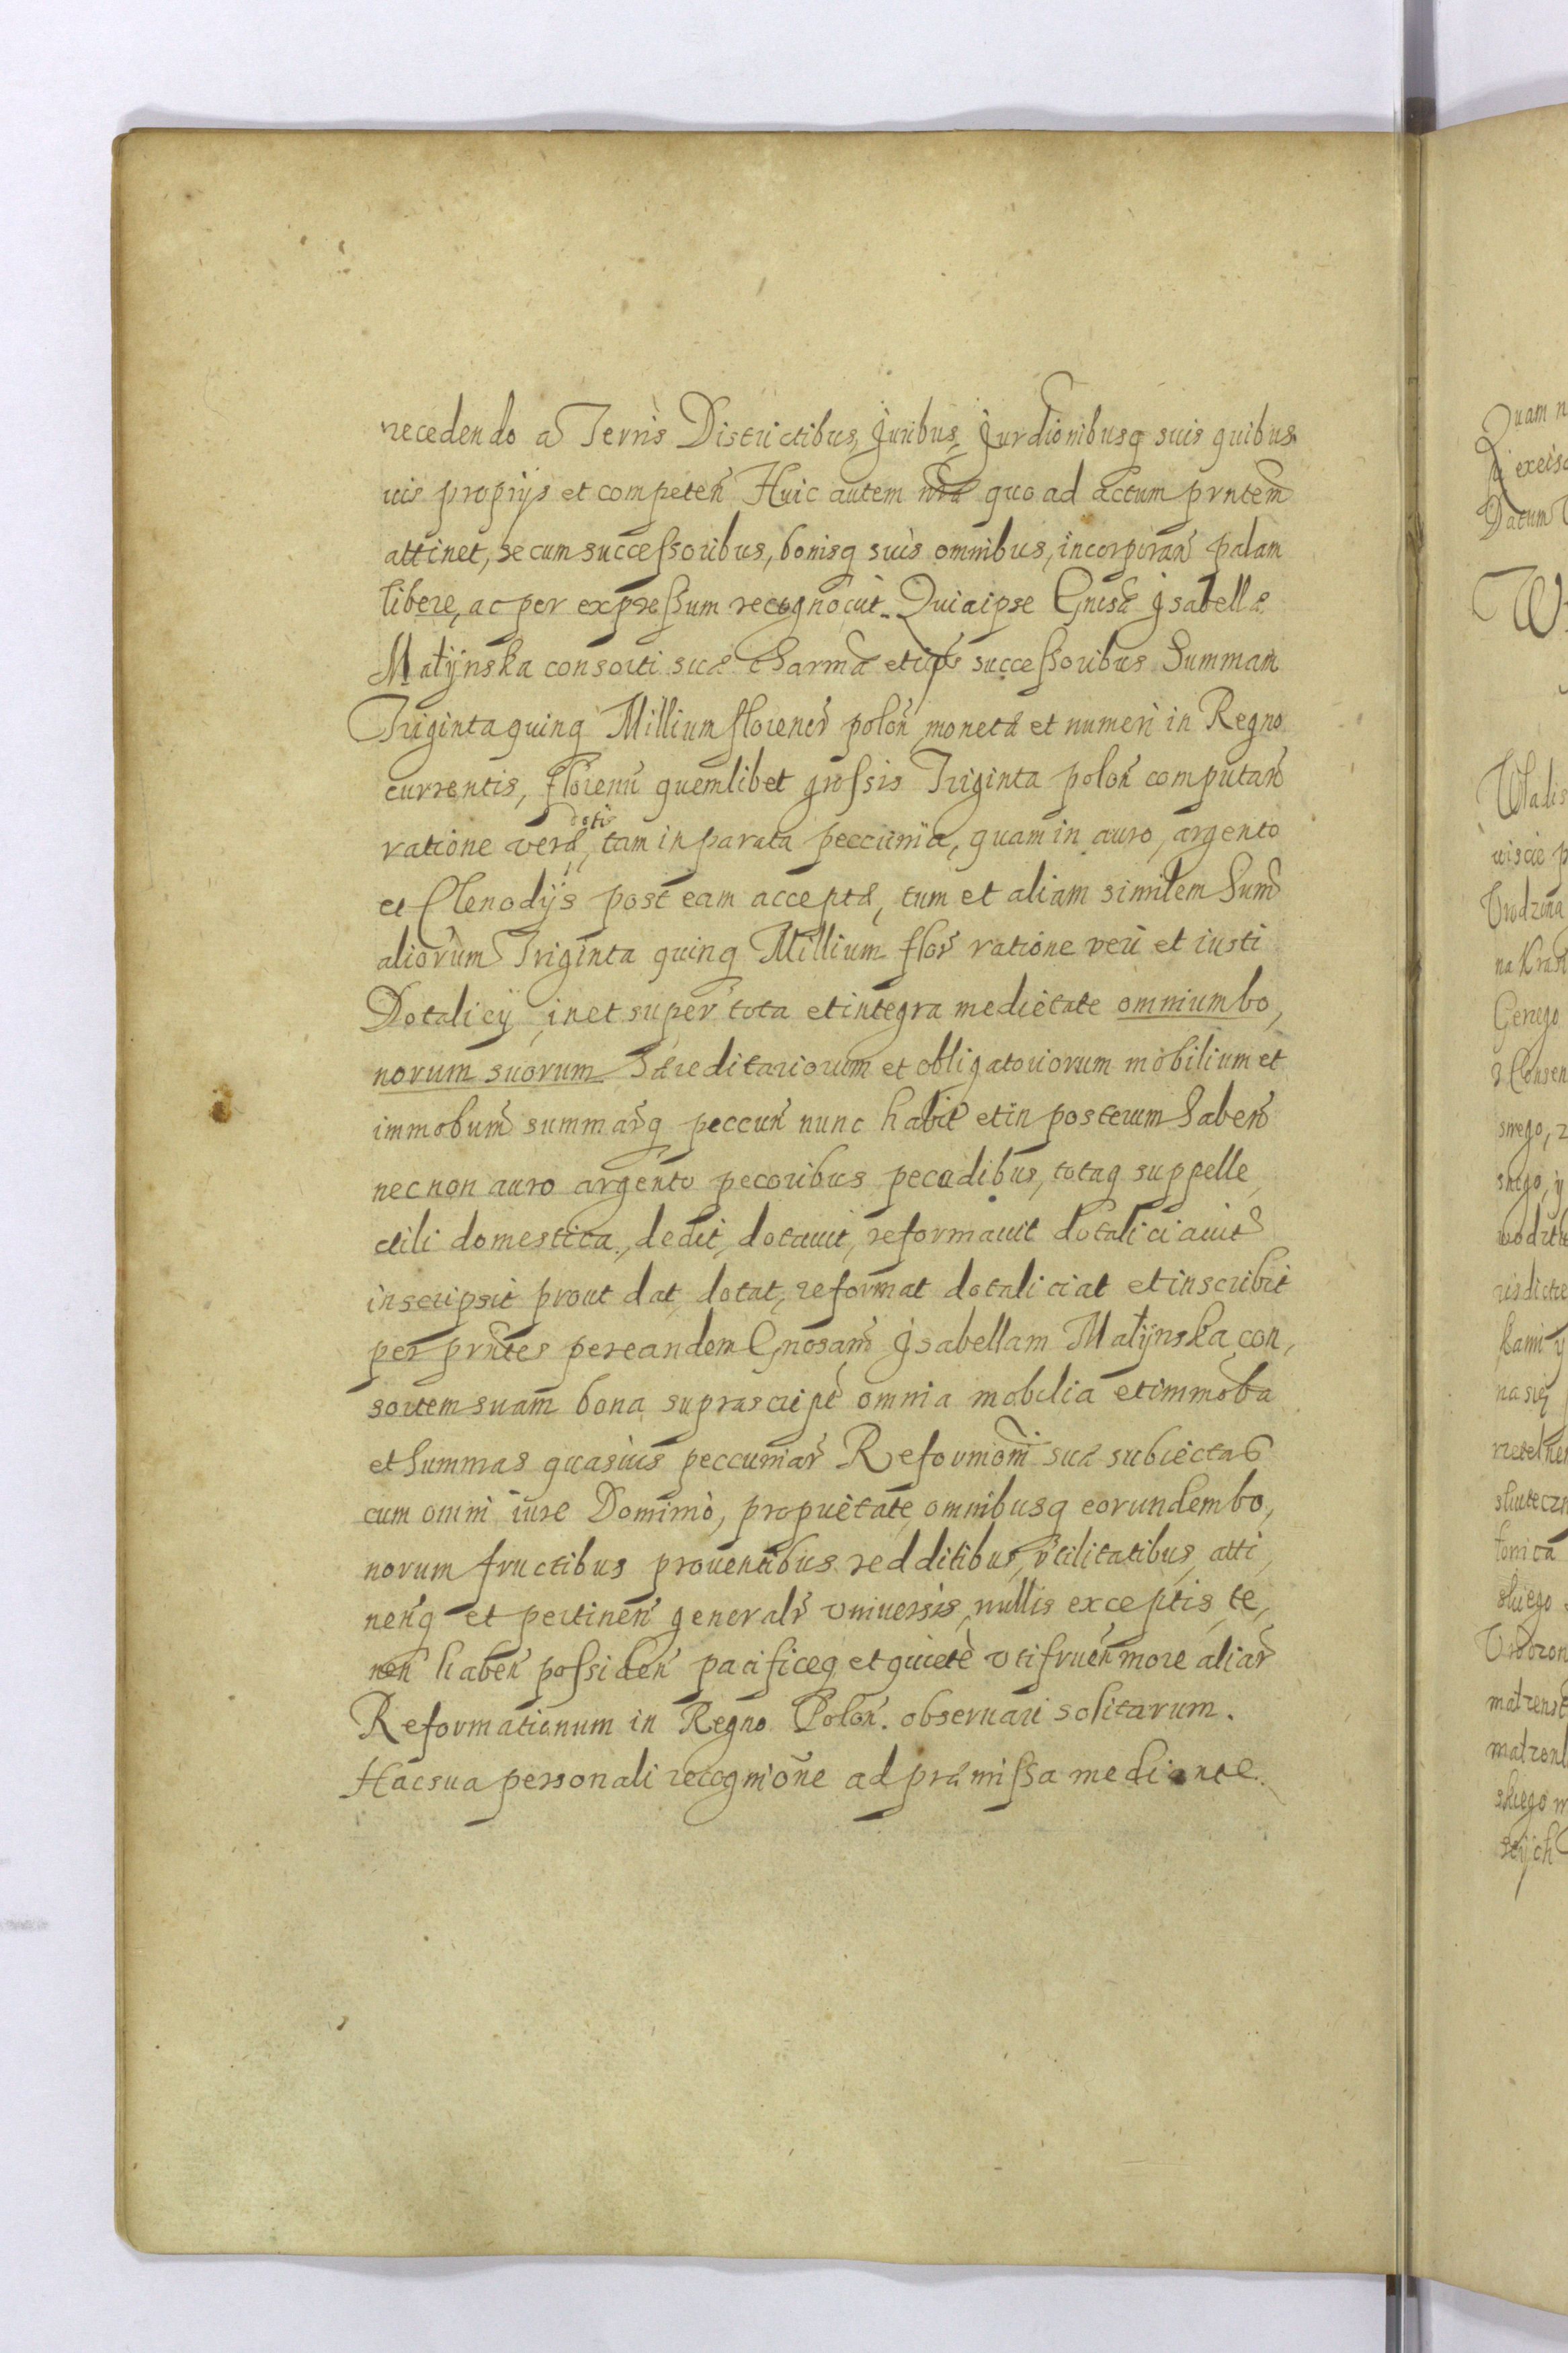 recedendo a Terris Districtibus, Juribus, Jurdionibusq suis quibus
uis proprijs et competeñ Huic autem nrä quo ad actum prntem
attinet, se cum successoribus, bonisq suis omnibus, incorporañ palam
libere, ac per expressum recognouit. Quia ipse Gnisæ Jsabellæ
Matÿnska consorti suæ charmæ et ipś successoribus Summam
Triginta quinq Millium florenoŕ poloń monetæ et numeri in Regno
currentis, florenū quemlibet grossis Triginta poloń computań
dotis
ratione veræ, tam in parata peccunia, quam in auro, argento
et Clenodÿs post eam acceptæ, tum et aliam similem Sum̄
aliorum Triginta quinq Millium floŕ ratione veri et iusti
Dotalicÿ in et super tota et integra medietate omnium bo,
norum suorum Hæreditariorum et obligatoriorum mobilium et
immobum̄ summaŕq peccuń nunc habit̄ et in posterum habeń
nec non auro argento pecoribus pecudibus, totaq suppelle,
ctili domestica, dedit, dotauit, reformauit dotaliciauit
inscripsit prout dat, dotat, reformat dotaliciat et inscribit
per prn̄tes per eandem Gnosam̄ Jsabellam Matÿnska con,
sortem suam bona suprascript̄ omnia mobilia et immoba
et Summas quasuis peccuniaŕ Reformōni suæ subiectas
cum omni iure Dominio, proprietate, omnibusq eorundem bo,
norum fructibus prouentibus redditibus, vtilitatibus, atti,
neńq et pertineń generalŕ vniuersis, nullis exceptis, te,
neń habeń possideń pacificeq et quietè vtifrueń more aliaŕ
Reformationum in Regno Poloń. obseruari solitarum.
Hac sua personali recognione ad præmissa mediante.